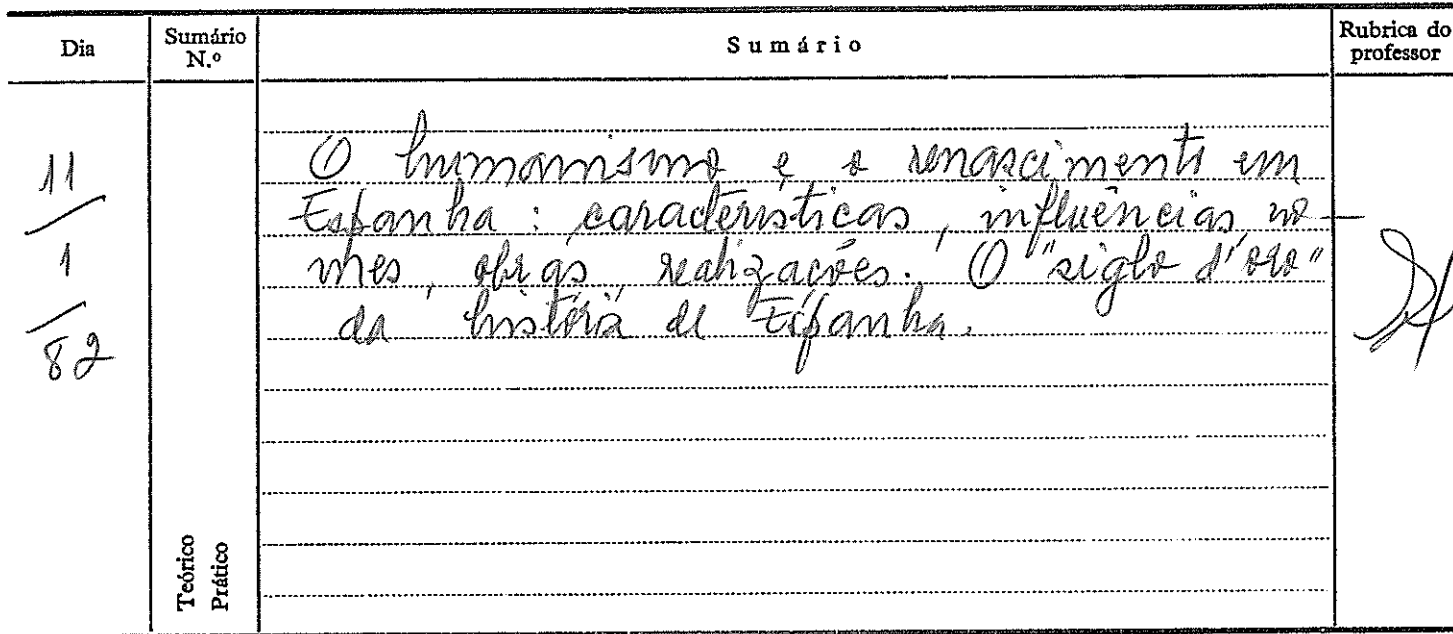 Dia
Sumário
N.º
Sumário
Rubrica do
professor
11
1
82
O humanismo e o renascimento em
Espanha: características, influências, no-
mes, obras, realizações. O "siglo d'oro"
da história de Espanha.
Teórico
Prático